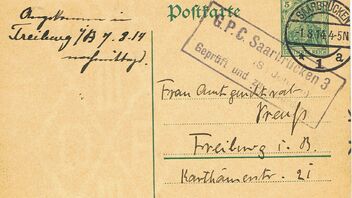 Postkarte
Angekommen in
Freiburg i/B 7.8.14
nachmittag.
G.P.C. Saarbrücken 3
Geprüft und
SAARBRÜCKEN
1.8.14 4-5N
* 1 a
5
Frau Amtsgerichtsrat
Preuß
Freiburg i. B.
Karthäuserstr. 21